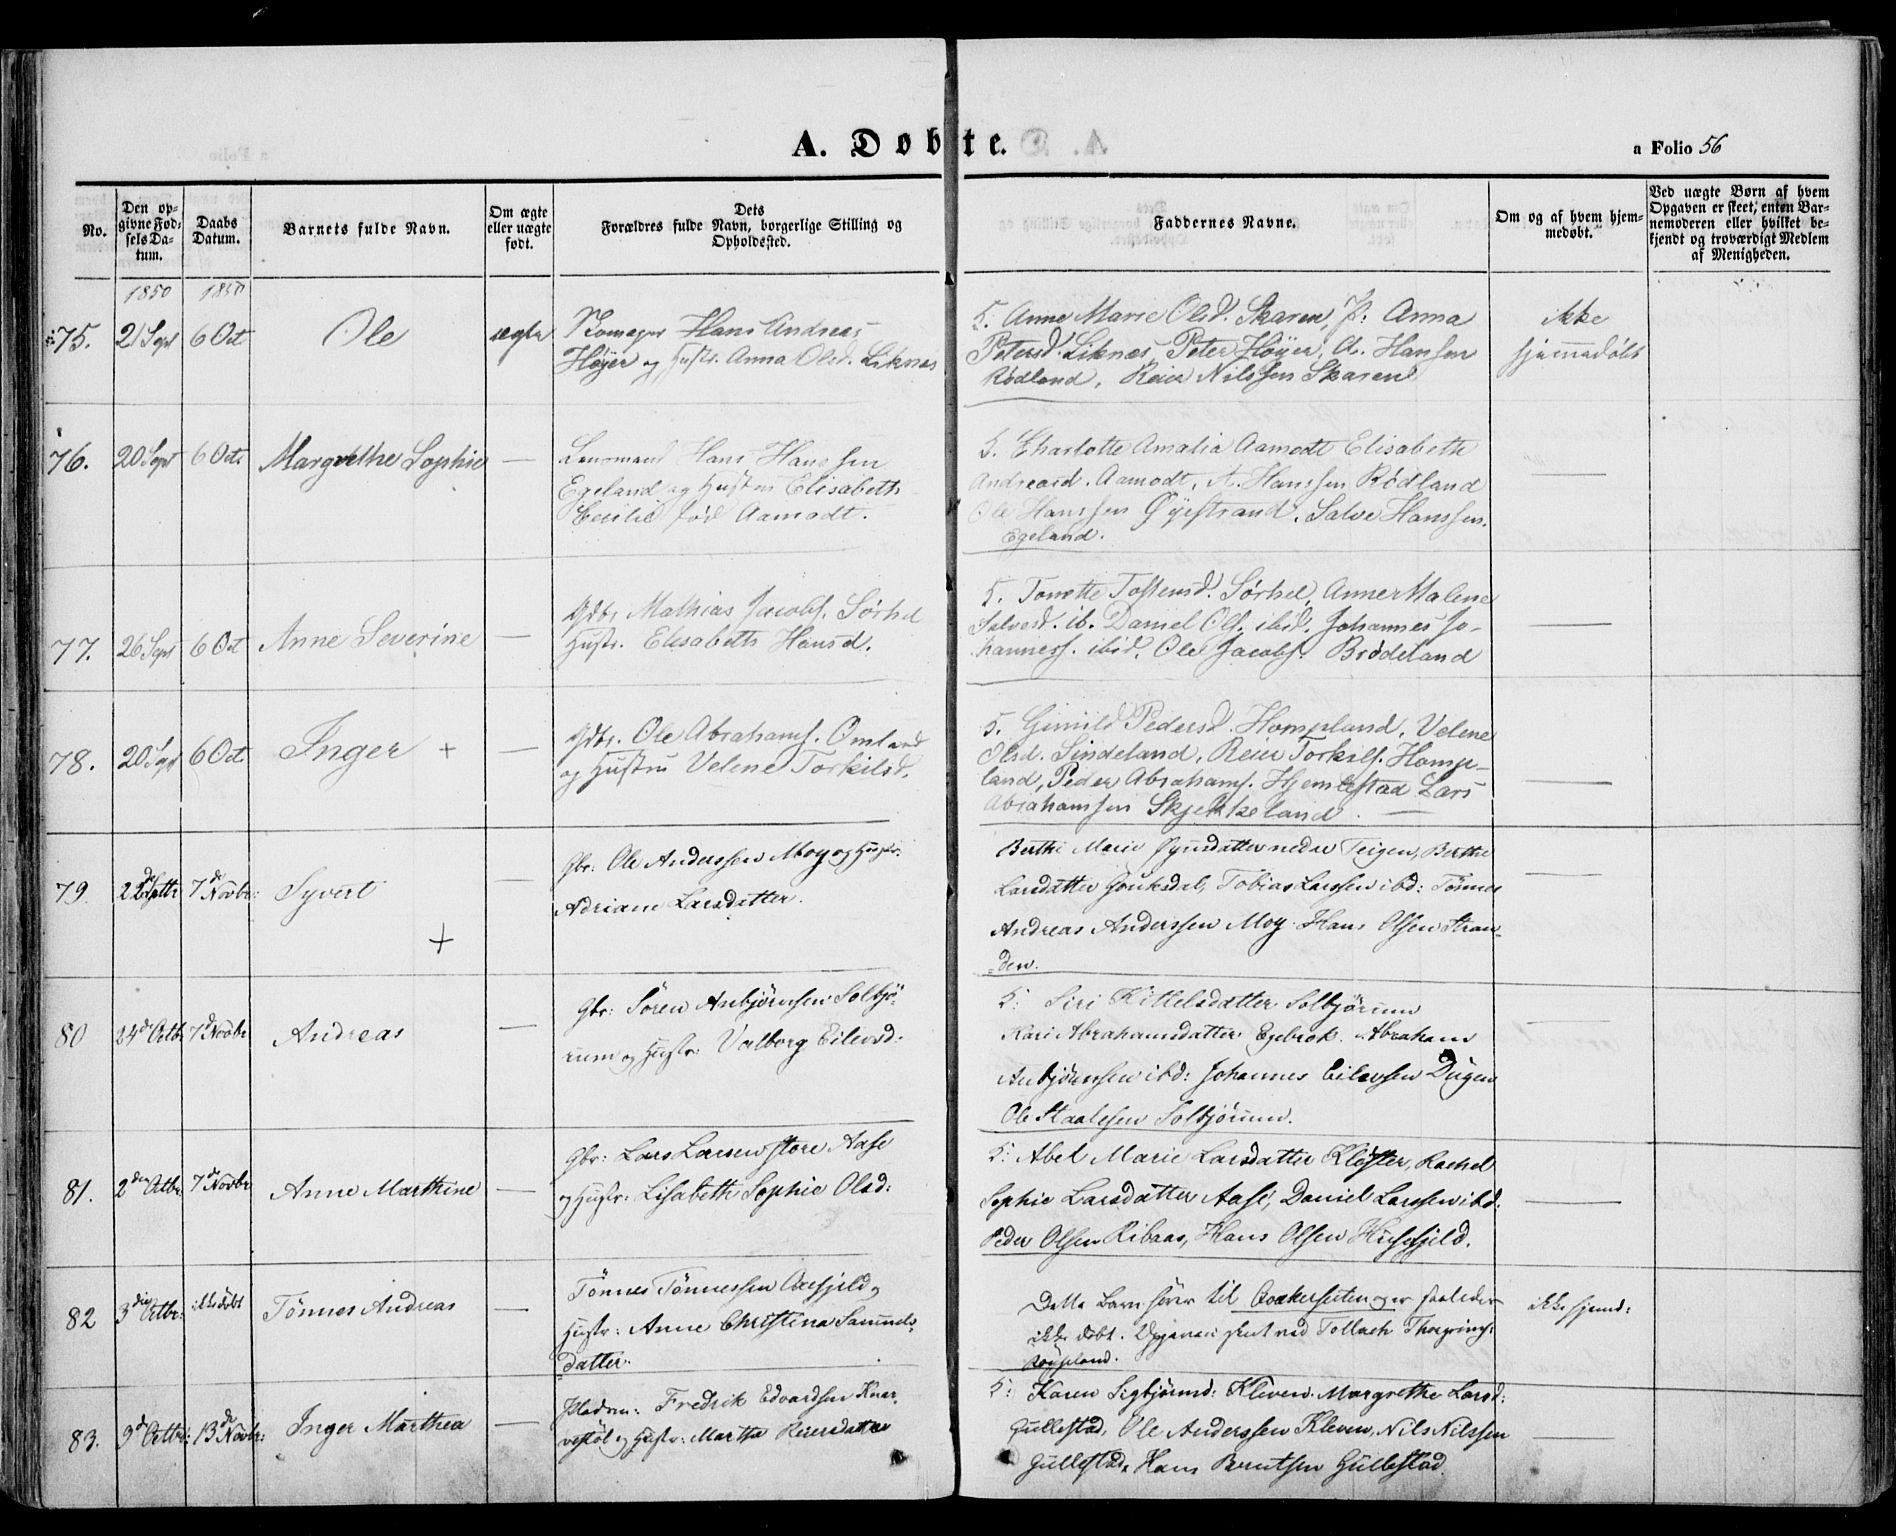 A. Døbte.
a Folio 56
No.
Den op-
givne Fød-
sels Da-
tum.
Daabs
Datum.
Barnets fulde Navn.
Om ægte
eller uægte
født.
Dets
Forældres fulde Navn, borgerlige Stilling og
Opholdssted.
Faddernes Navne.
Om og af hvem hjem-
medøbt.
Ved uægte Børn af hvem
Opgaven er skeet, enten Bar-
nemoderen eller hvilket be-
kjendt og troværdigt Medlem
af Menigheden.
1850 1850
75. 21 Sept 6 Oct Ole ægte
Skomager Hans Andreas
Høyer og Hustr. Anna Olsd. Liknæs
5. Anne Marie Olsd. Skaren, P: Anna
Petersd. Liknæs, Peter Høyer, A. Hansen
Rødland, Reier Nilssen Skaren
ikke
hjemedøbt
76. 20 Sept 6 Oct. Margrethe Sophie —
Lensmand Hans Hanssen
Egeland og Hustru Elisabeth
Cecilie fød Aamodt.
5. Charlotte Amalia Aamodt Elisabeth
Andreasd. Aamodt, A. Hanssen Rødland
Ole Hanssen Øyestrand, Salve Hanssen
Egeland.
—
77. 26 Sept 6 Oct Anne Severine —
Gdbr. Mathias Jacobs. Sørhel
Hustr. Elisabeth Hansd.
5. Tonette Tostensd. Sørhel, Anne Malene
Salvesd. ib. Daniel Ols. ibid. Johannes Jo-
hanness. ibid. Ole Jacobs. Brødeland
—
78. 20 Sept 6 Oct Inger + —
Gdbr. Ole Abrahams. Omland
og Hustru Velene Torkilsd.
5. Gunild Pedersd. Hompland, Velene
Olsd. Sindeland, Reier Torkils. Homp-
land, Peder Abrahams. Hjemlestad Lars
Abrahamsen Skjekkeland. —
—
79. 7de Novbr: Syvert + —
Gbr: Ole Anderssen Moy og Hustr:
Adriane Larsdatter.
Berthe Marie nedre Teigen, Berthe
Larsdatter Gouksdal, Tobias Larssen ibd: Tønnes
Andreas Anderssen Moy. Hans Olsen Stran-
den.
—
80 24de Octb. 7de Novbr Andreas —
Gbr: Sören Anbjörnsen Solbjø-
rum og Hustr: Valborg Eilevsd:
5: Siri Kittelsdatter Solbjörum
Kari Abrahamsdatter Egebrok. Abraham
Anbjörnsen ibd: Johannes Eilevsen Dugen
Ole Staalesen Solbjörum.
—
81. 2den Octbr. 7de Novbr Anne Marthine —
Gbr: Lars Larsen store Aase
og Hustr: Lisabeth Sophie Olsd:
5: Abel Marie Larsdatter Kløster, Rachel
Sophie Larsdatter Aase, Daniel Larssen ibd:
Peder Olsen Ribaas, Hans Olsen Husefjeld.
—
82 3die Octbr: ikke døbt Tönnes Andreas —
Tönnes Tönnessen Oxefjeld og
Hustr: Anne Christina Samuels-
datter.
Dette Barn hører til Qvækersecten og er saaledes
ikke døbt. Opgaven skeet ved Tollach
Røyseland.
ikke hjemd:
83. 9de Octbr: 13de Novbr: Inger Marthea —
Pladsm: Fredrik Edvardsen Knar-
vestöl og Hustr: Martha Reiersdatter
5: Karen Sigbjörnsd: Kleven. Margrethe Larsd:
Gullestad, Ole Anderssen Kleven, Nils Nilssen
Gullestad, Hans Berntsen Gullestad.
—